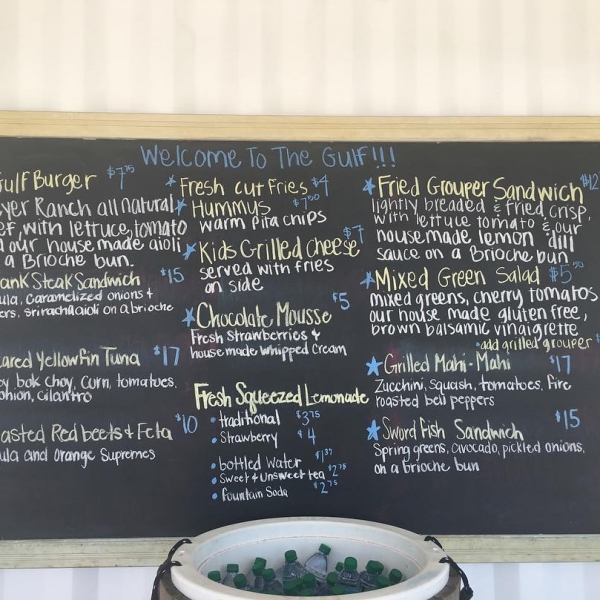 Welcome To The Gulf!!!
Gulf Burger $7.75
yer Ranch all natural
ef, with lettuce, tomato
our house made aioli
a Brioche bun.
ank Steak Sandwich $15
ula, Caramelized onions +
ers, sriracha aioli on a brioche
ared Yellowfin Tuna $17
y bok choy, corn, tomatoes,
onion, cilantro
oasted Red beets + Feta $10
ula and Orange Supremes
Fresh cut Fries $4
Hummus $7.50
warm pita chips
Kids Grilled cheese $7
served with fries
on side
Chocolate Mousse $5
Fresh Strawberries +
housemade whipped cream
Fresh Squeezed Lemonade
• traditional $3.75
• Strawberry $4
• bottled Water
• Sweet & Unsweet tea $2.75
• Fountain Soda $2.75
Fried Grouper Sandwich $12
lightly breaded & fried crisp,
with lettuce tomato & our
housemade lemon dill
sauce on a Brioche bun
Mixed Green Salad
mixed greens, cherry tomatos
our house made gluten free,
brown balsamic vinaigrette
*add grilled grouper
Grilled Mahi-Mahi $17
Zucchini, squash, tomatoes, fire
roasted bell peppers
Sword Fish Sandwich $15
Spring greens, avocado, pickled onions,
on a brioche bun